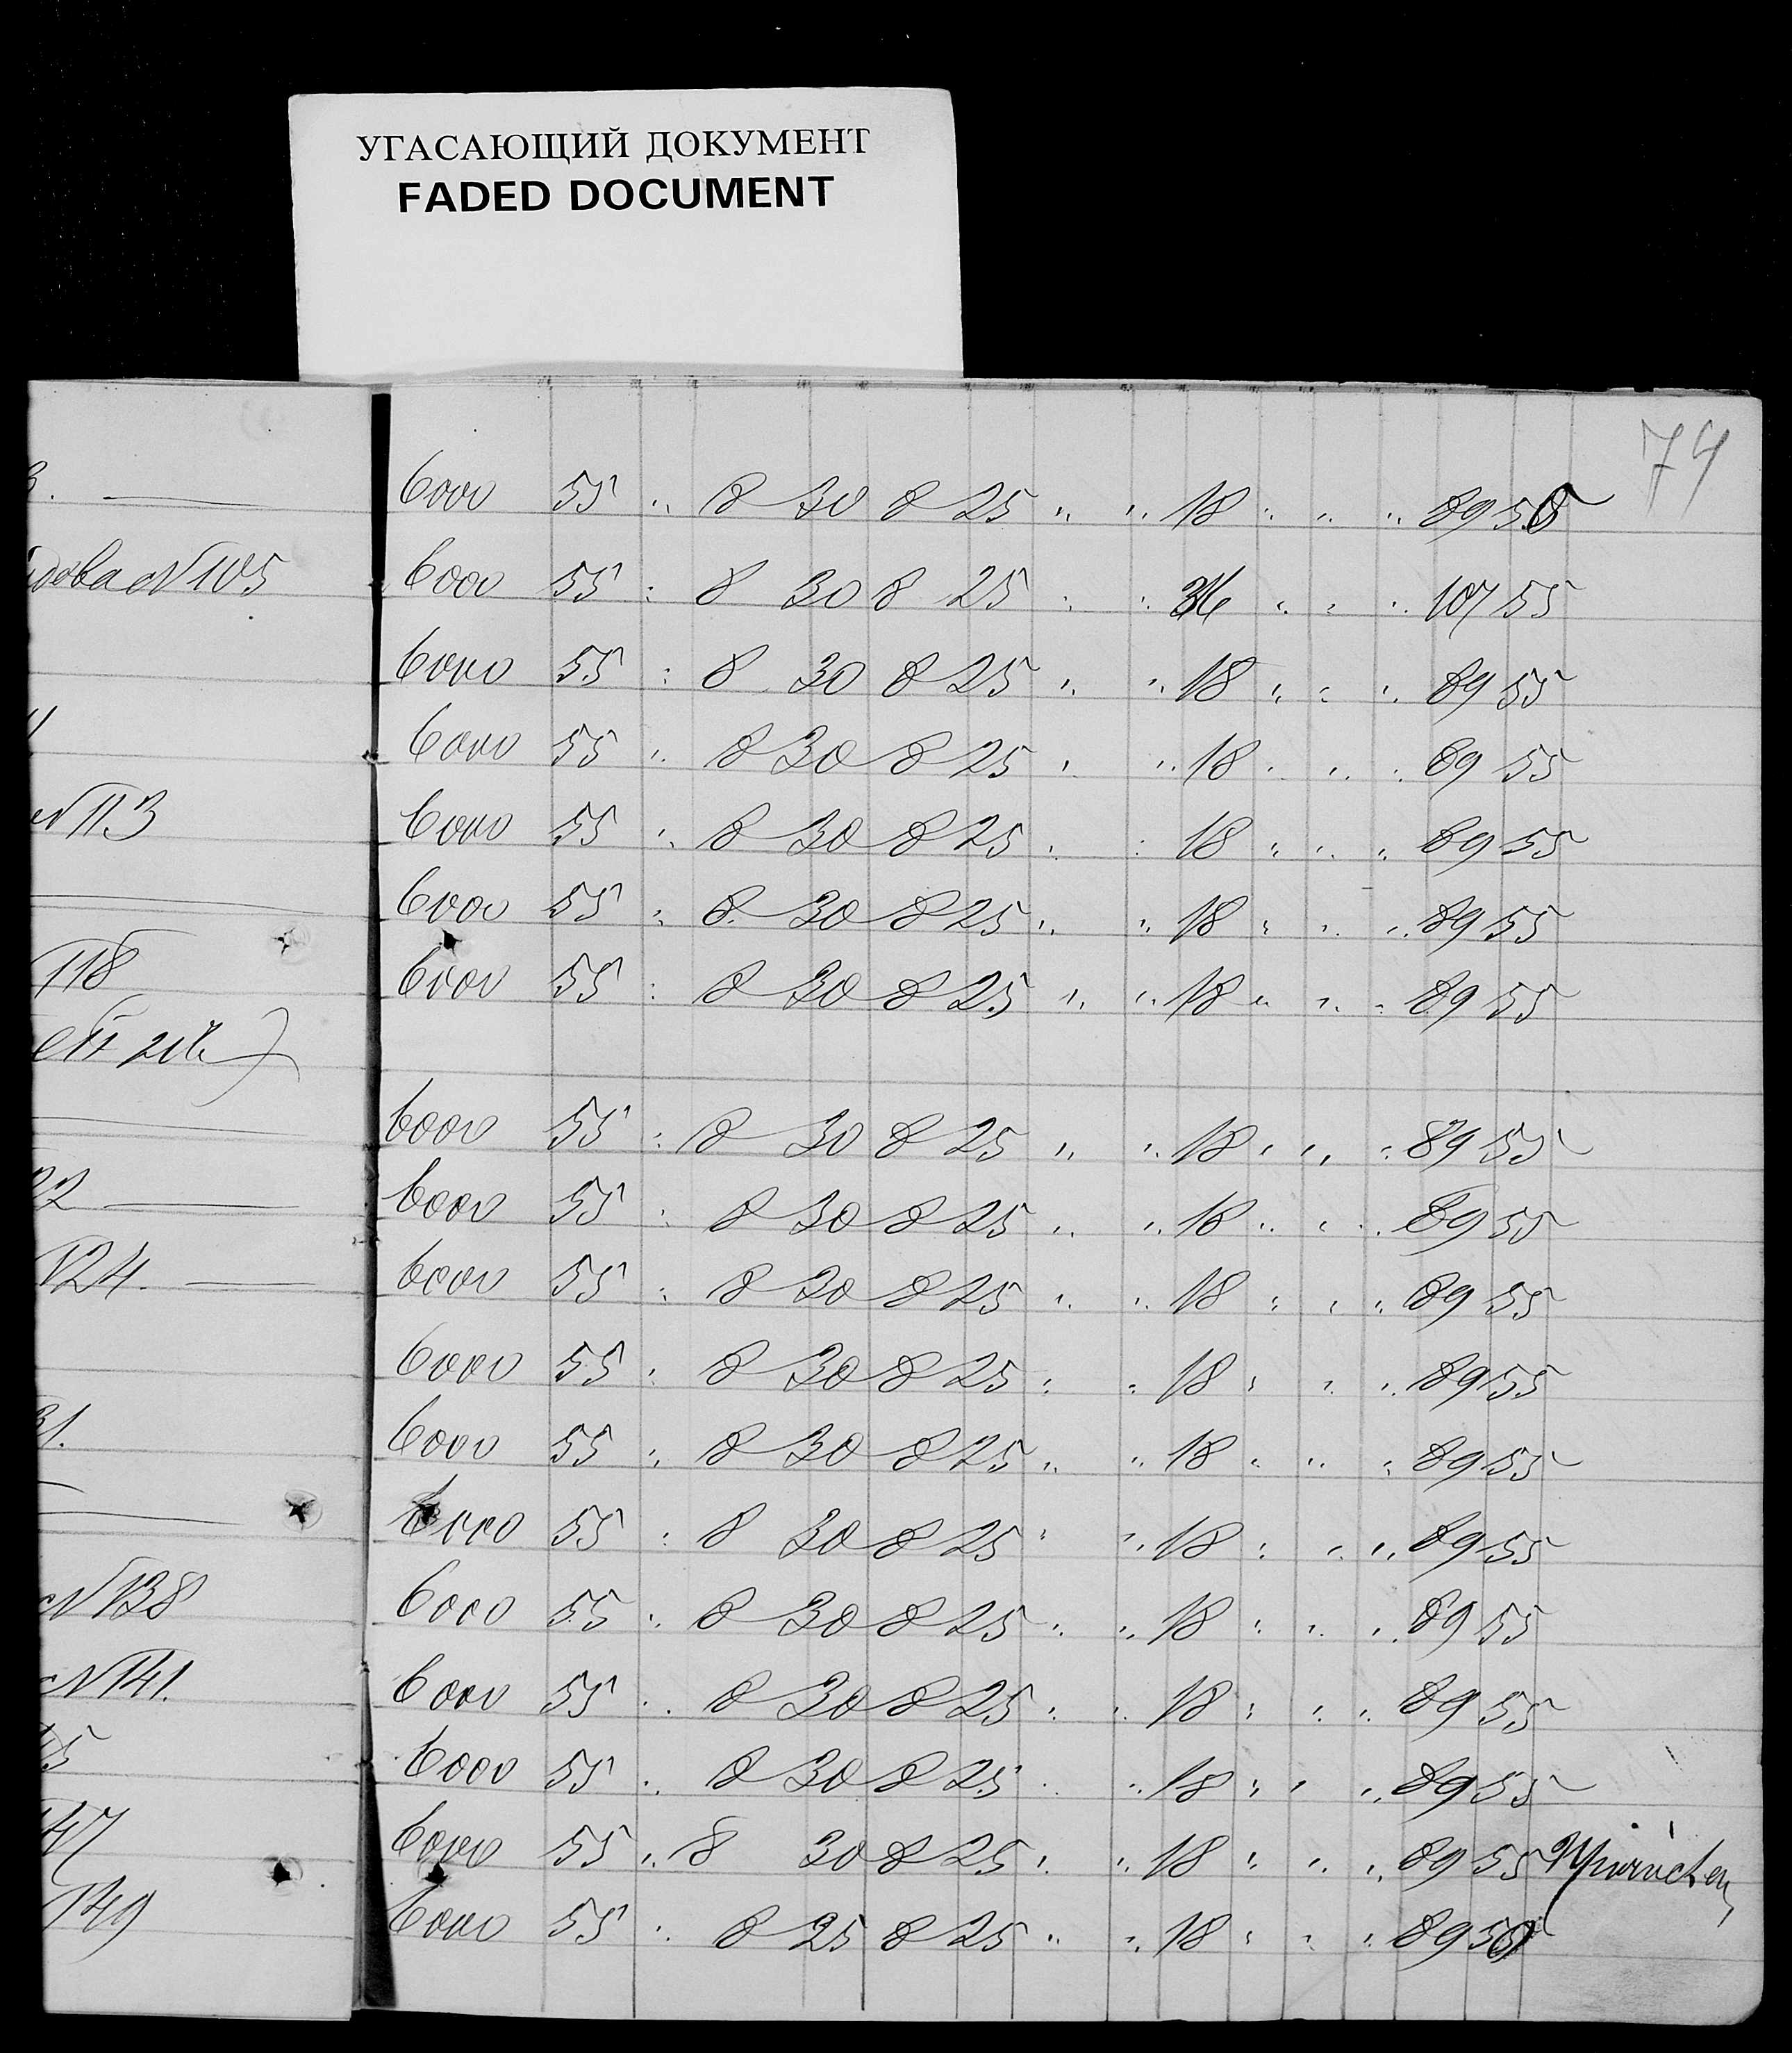 УГАСАЮЩИЙ ДОКУМЕНТ
FADED DOCUMENT
74
3. 6000 55 " 8 30 8 25 " " 18 " " " 89 55
дова № 105 6000 55 " 8 30 8 25 " " 36 " " " 107 55
6000 55 " 8 30 8 25 " " 18 " " " 89 55
6000 55 " 8 30 8 25 " " 18 " " " 89 55
№ 113 6000 55 " 8 30 8 25 " " 18 " " " 89 55
6000 55 " 8 30 8 25 " " 18 " " " 89 55
118 6000 55 " 8 30 8 25 " " 18 " " " 89 55
6000 55 " 8 30 8 25 " " 18 " " " 89 55
22 6000 55 " 8 30 8 25 " " 18 " " " 89 55
124. 6000 55 " 8 30 8 25 " " 18 " " " 89 55
6000 55 " 8 30 8 25 " " 18 " " " 89 55
31. 6000 55 " 8 30 8 25 " " 18 " " " 89 55
6000 55 " 8 30 8 25 " " 18 " " " 89 55
№ 138 6000 55 " 8 30 8 25 " " 18 " " " 89 55
№ 141. 6000 55 " 8 30 8 25 " " 18 " " " 89 55
45 6000 55 " 8 30 8 25 " " 18 " " " 89 55
147 6000 55 " 8 30 8 25 " " 18 " " " 89 55
149 6000 55 " 8 25 8 25 " " 18 " " " 89 50